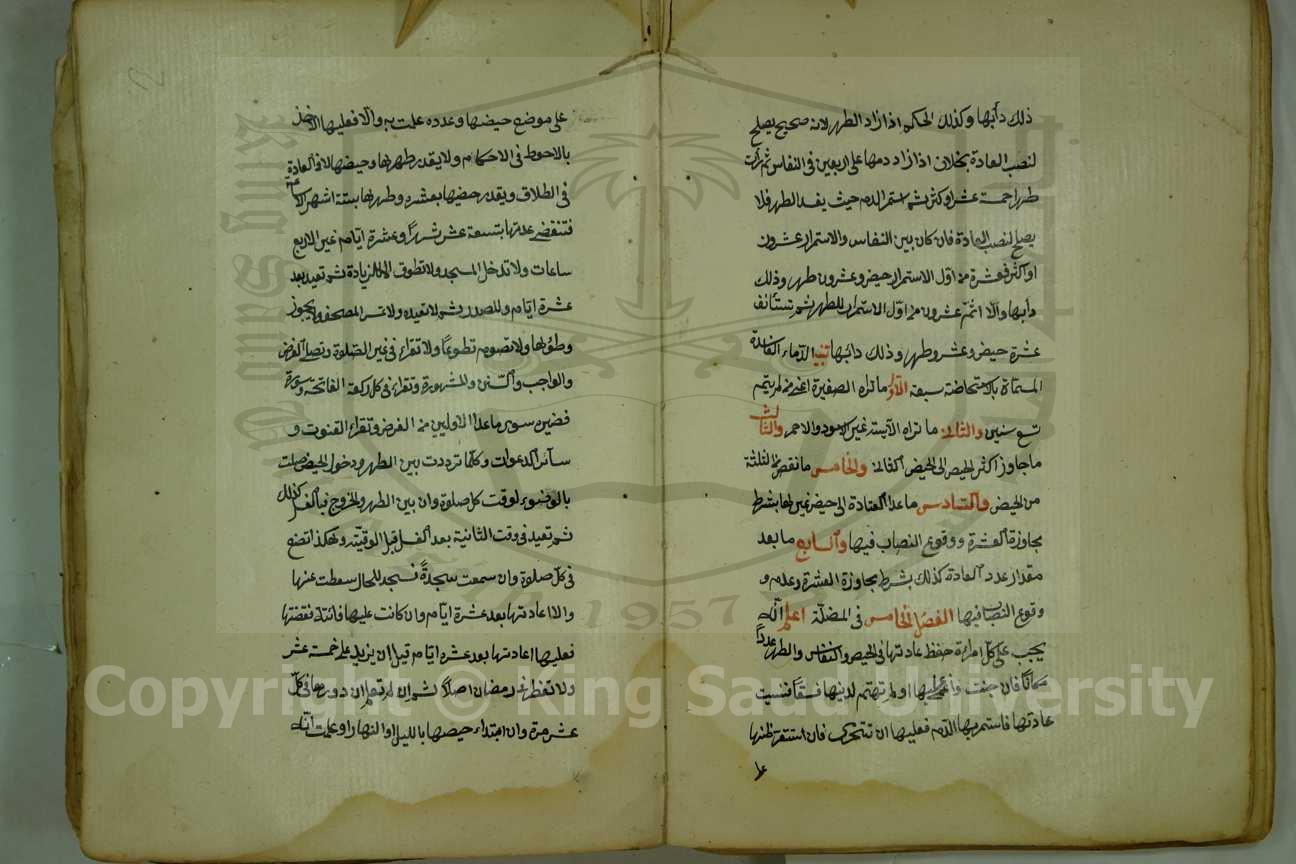 ذلك دأبها وكذلك الحكم اذا زاد الطهر لانه صحيح يصلح
لنصب العادة بخلاف اذا زاد دمها على اربعين فى النفاس ثم رأت
طهرا خمسة عشر او اكثر ثم استمر الدم حيث يفسد الطهر فلا
يصلح لنصب العادة فان كان بين النفاس والاستمرار عشرون
او اكثر فعشرة من اول الاستمرار حيض وعشرون طهر وذلك
دأبها والا اتم عشرون من اول الاستمرار للطهر ثم تستأنف
عشرة حيض وعشرو طهر وذلك دأبها تنبيه الدماء الفاسدة
المسماة بالاستحاضة سبعة الأول ما تراه الصغيرة اعنى من لم يتم
تسع سنين والثانى ما تراه الآيسة غير الاسود والاحمر والثالث
ما جاوز اكثر الحيض الى الحيض الثانى والخامس ما نقص من الثلثة
من الحيض والسادس ما عدا العادة الى حيض غيرها بشرط
مجاوزة العشرة ووقوع النصاب فيها والسابع ما بعد
مقدار عدد العادة كذلك بشرط مجاوزة العشرة وعدم و
وقوع النصاب فيها الفصل الخامس فى المضلة اعلم انه
يجب على كل امرأة حفظ عادتها فى الحيض والنفاس والطهر عددا
ومكانا فان جنت او اغمى عليها او لم تهتم لدينها فسقا فنسيت
عادتها فاستمر بها الدم فعليها ان تتحرى فان استقر ظنها
على
على موضع حيضها وعدده عملت به والا فعليها الاخذ
بالاحوط فى الاحكام ولا يقدر طهرها وحيضها الا فى العادة
فى الطلاق ويقدر حيضها بعشرة وطهرها بستة اشهر الا ساعة
فتنقضى عدتها بتسعة عشر شهرا وعشرة ايام غير اربع
ساعات ولا تدخل المسجد ولا تطوف الا للزيارة ثم تعيد بعد
عشرة ايام وللصدر ثم لا تعيده ولا تمس المصحف ولا يجوز
وطؤها ولا تصوم تطوعا ولا تقراء فى غير الصلوة وتصلى الفرض
والواجب والسنن المشهورة وتقراء فى كل ركعة الفاتحة وسورة
قصيرة سوى ما عدا الاوليين من الفرض وتقراء القنوت و
سائر الدعوات وكلما ترددت بين الطهر ودخول الحيض صلت
بالوضوء لوقت كل صلوة وان بين الطهر والخروج فبالغسل كذلك
ثم تعيد فى وقت الثانية بعد الغسل قبل الوقتية وهكذا تصنع
فى كل صلوة وان سمعت سجدة فسجد للحال سقطت عنها
والا اعادتها بعد عشرة ايام وان كانت عليها فائتة فقضتها
فعليها اعادتها بعد عشرة ايام قبل ان يزيد على خمسة عشر
ولا تفطر فى رمضان اصلا ثم ان لم تعلم ان دورها فى كل
شهر مرة وان ابتداء حيضها بالليل او النهار او علمت انه
Copyright © King Saud University
1957